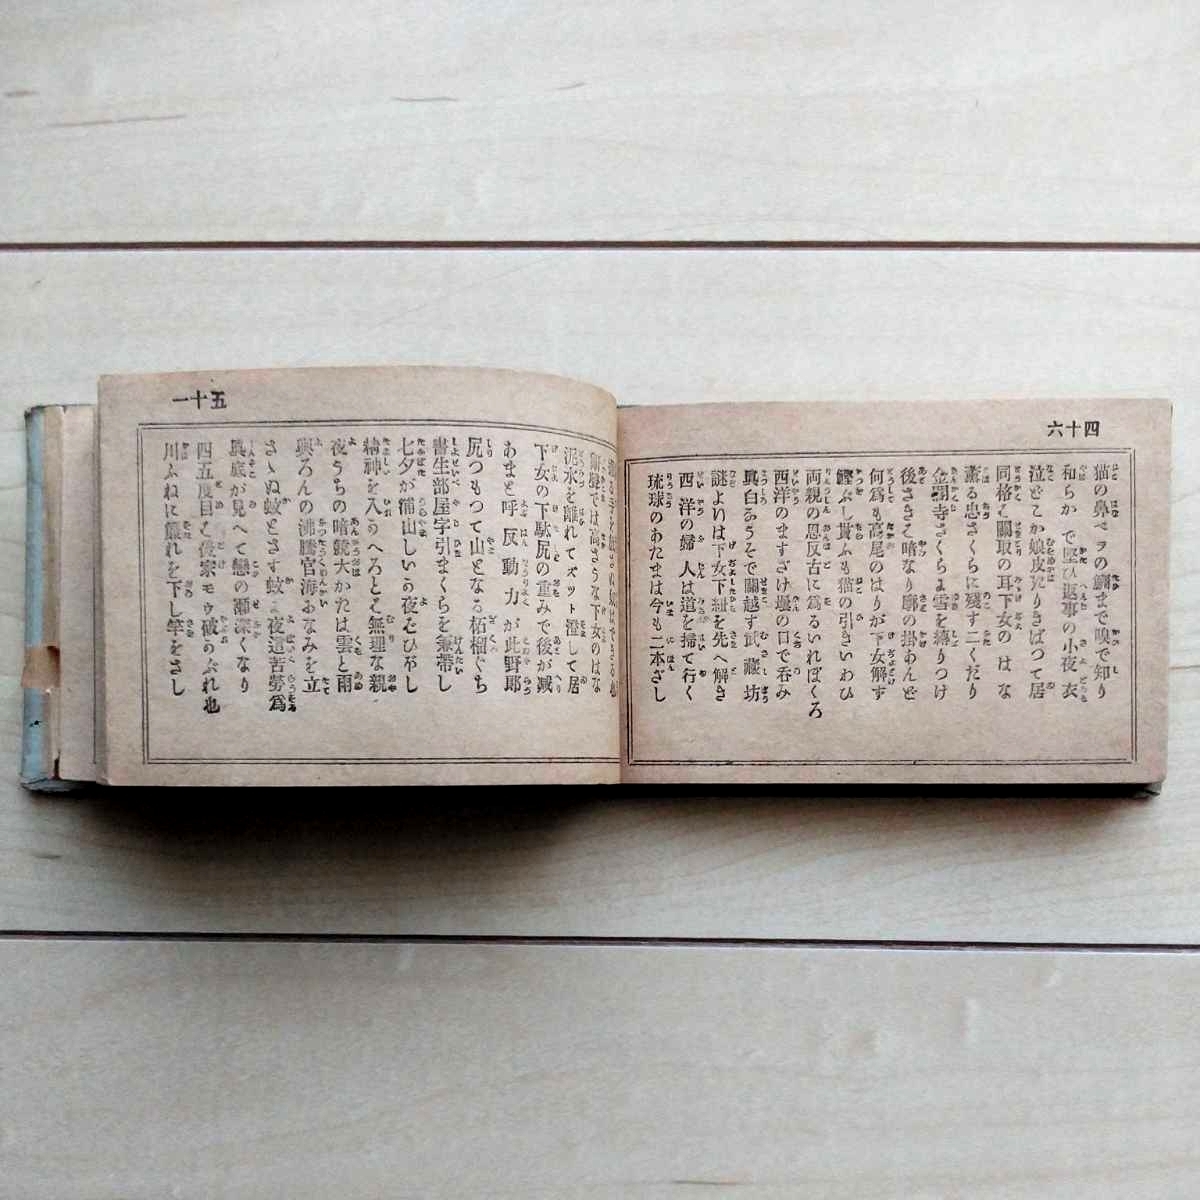 四十六
猫の鼻ペヲの鯛まで嗅で知り
和らかで堅ひ返事の小夜衣
泣どこか娘皮たりきばつて居
同格は關取の耳下女のはな
薫る忠さくらに殘す二くだり
金閣寺さくらは雪を縛りつけ
後ささは暗なり廓の掛あんど
何爲も高尾のはりが下女解ず
鰹ぶし貰ふも猫の引きいわひ
両親の恩反古に爲るいれぼくろ
西洋のますざけ壜の口で呑み
眞白なうそで關越す武藏坊
謎よりは下女下紐を先へ解き
西洋の婦人は道を掃て行く
琉球のあたまは今も二本ざし
五十一
では高さうな下女のはな
泥水を離れてズット澄して居
下女の下駄尻の重みで後が减
あまと呼反動力が此野郎
尻つもつて山となる柘榴ぐち
書生部屋字引まくらを兼帯し
七夕が浦山しいの夜をひやし
精神を入るへろとは無理な親
夜うちの暗號大かたは雲と雨
輿ろんの沸騰官海おなみを立
さゝぬ蚊とさす蚊は夜道苦勞爲
眞底が見へて戀の瀬深くなり
四五度目は侵家モウ破のぶれ也
川ふねに簾れを下し竿をさし